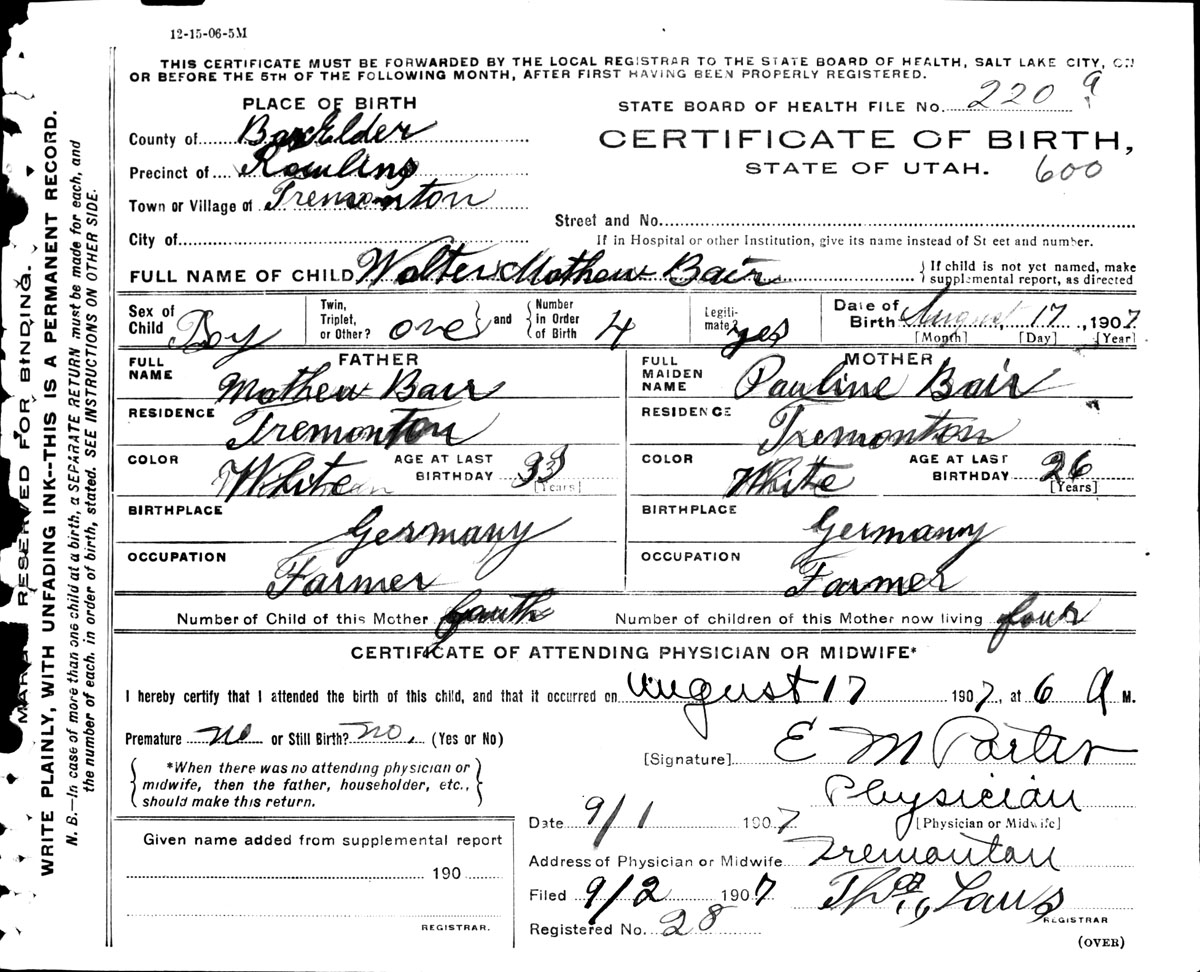 12-15-06-5M
THIS CERTIFICATE MUST BE FORWARDED BY THE LOCAL REGISTRAR TO THE STATE BOARD OF HEALTH, SALT LAKE CITY, ON
OR BEFORE THE 5TH OF THE FOLLOWING MONTH, AFTER FIRST HAVING BEEN PROPERLY REGISTERED.
PLACE OF BIRTH
County of Box Elder
Precinct of Rawlins
Town or Village of Tremonton
City of
STATE BOARD OF HEALTH FILE No. 220 9
CERTIFICATE OF BIRTH,
STATE OF UTAH. 600
Street and No.
If in Hospital or other Institution, give its name instead of St eet and number.
FULL NAME OF CHILD Walter Mathew Bair
If child is not yet named, make
supplemental report, as directed
Sex of Child Boy
Twin, Triplet, or Other? one and Number in Order of Birth 4
Legiti-mate? yes
Date of Birth August 17, 1907
[Month] [Day] [Year]
FATHER
FULL NAME Mathew Bair
RESIDENCE Tremonton
COLOR White AGE AT LAST BIRTHDAY 33 [Years]
BIRTHPLACE Germany
OCCUPATION Farmer
MOTHER
FULL MAIDEN NAME Pauline Bair
RESIDENCE Tremonton
COLOR White AGE AT LAST BIRTHDAY 26 [Years]
BIRTHPLACE Germany
OCCUPATION Farmer
Number of Child of this Mother fourth Number of children of this Mother now living four
CERTIFICATE OF ATTENDING PHYSICIAN OR MIDWIFE*
I hereby certify that I attended the birth of this child, and that it occurred on August 17 1907, at 6 A M.
Premature no or Still Birth? no. (Yes or No)
*When there was no attending physician or
midwife, then the father, householder, etc.,
should make this return.
[Signature] E M Porter
Physician
[Physician or Midwife]
Date 9/1 1907
Address of Physician or Midwife Tremonton
Filed 9/2 1907
Laws
REGISTRAR
Registered No. 28
(OVER)
Given name added from supplemental report
190
REGISTRAR.
RESERVED FOR BINDING.
WRITE PLAINLY, WITH UNFADING INK--THIS IS A PERMANENT RECORD.
N. B.—In case of more than one child at a birth, a SEPARATE RETURN must be made for each, and
the number of each. in order of birth, stated. SEE INSTRUCTIONS ON OTHER SIDE.